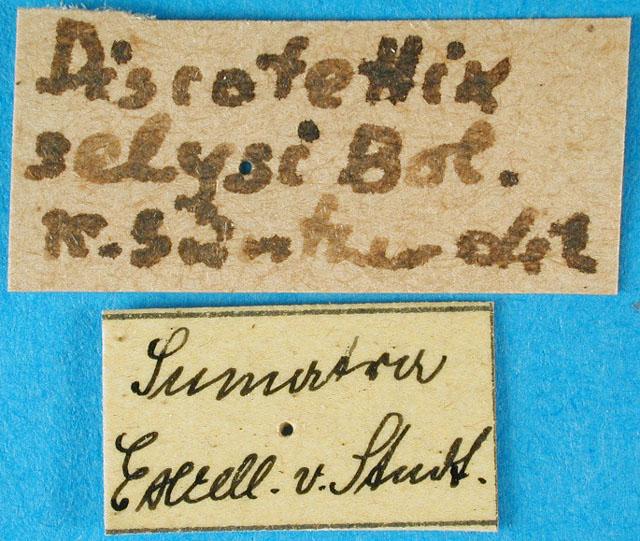 Discotettix
selysi Bol.
K. Günther det
Sumatra
Excell. v. Studt.